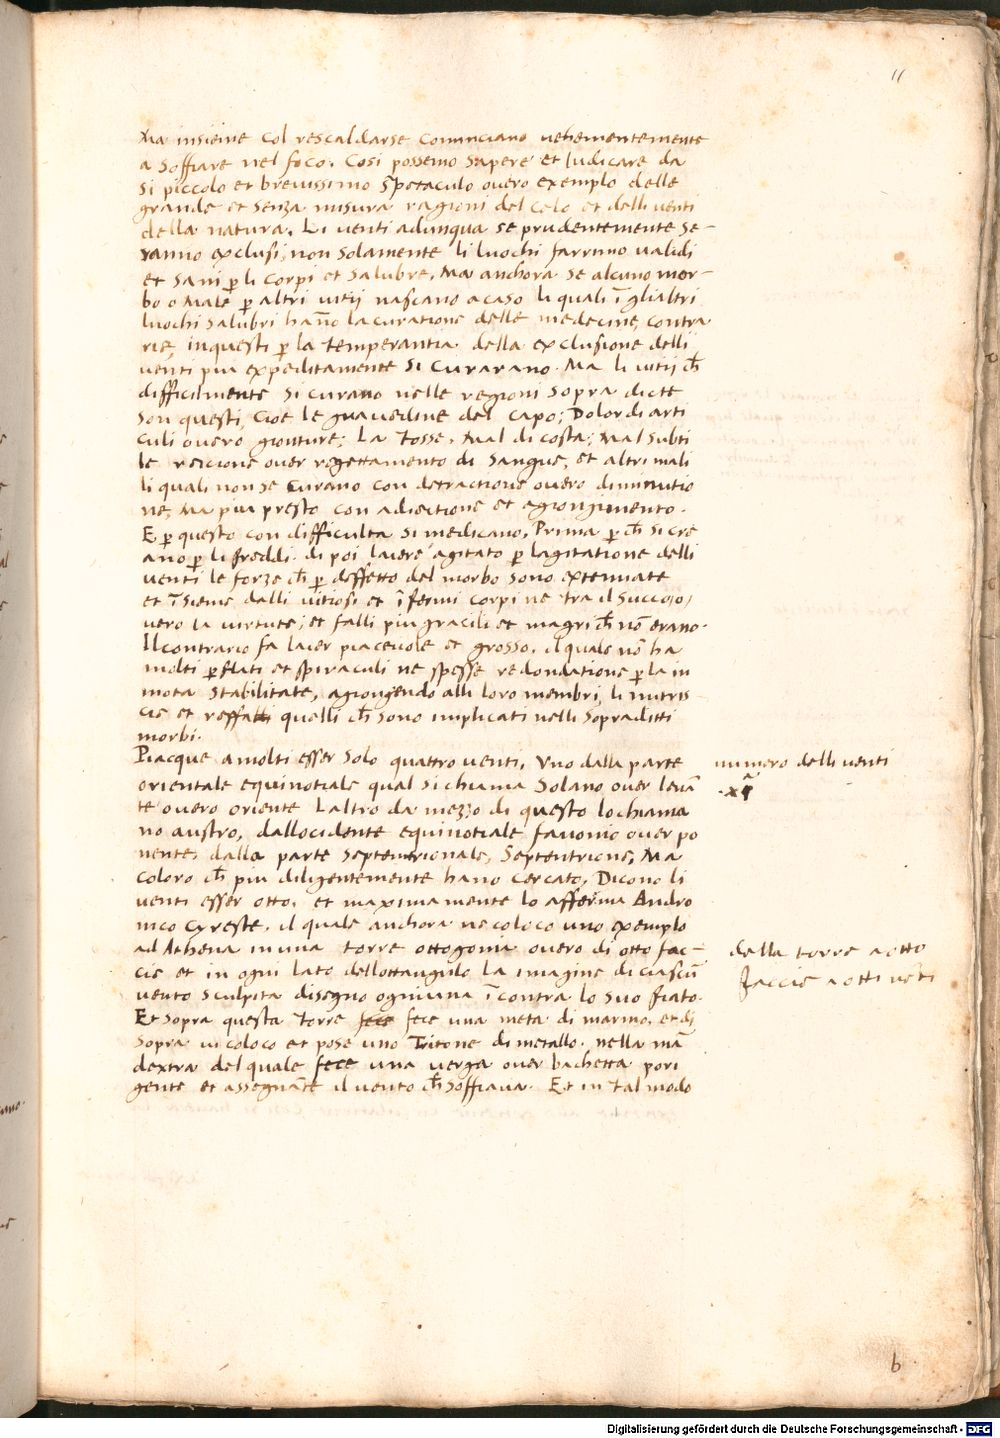 11
Ma insieme col rescaldarse cominciano vehementemente
a soffiare nel foco. Cosi possemo sapere et Iudicare da
si piccolo et brevissimo spetaculo overo exemplo delle
grande et senza misura ragioni del celo et delli venti
della natura. Li venti adunqua se prudentemente se-
ranno exclusi, non solamente li luochi farrnno validi
et sani p li corpi et salubre. Ma anchora se alcuno mor-
bo o male p altri vitij nascano acaso li quali ī glialtri
luochi salubri hāno la curatione delle medecine, contra
rie, in questi p la temperantia della exclusione delli
venti piu expeditamente si curarano. Ma li vitij ch̄
difficilmente si curano nelle regioni sopra dicte
son questi, Cioe le gravedine del capo; Dolor di arti
culi overo gionture; La tosse. Mal di costa; Mal subti
le reicione over regettamento di sangue, et altri mali
li quali non se curano con detractione overo diminutio
ne, Ma piu presto con adiectione et agiongimento.
E p questo con difficulta si medicano. Prima p ch̄ si cre
ano p li freddi. di poi laere agitato p lagitatione delli
venti le forze ch̄ p deffetto del morbo sono extenuate
et īsieme dalli vitiosi et ī fermi corpi ne tra il succo, o,
vero la virtute; et falli piu gracili et magri ch̄ nō erano.
Il contrario fa laier piacevole et grosso. il quale nō ha
molti pflati et spiraculi ne spesse redondatione p la in
mota stabilitate, agiongendo alli loro membri, li nutris-
cie et reffatti quelli ch̄ sono implicati nelli sopraditti
morbi.
Piacque a molti esser solo quattro venti. Uno dalla parte
orientale equinotiale qual si chiama Solano over levā
te overo oriente Laltro da mezzo di questo lo chiama
no austro, dallocidente equinotiale favonio over po
nente, dalla parte septemtrionale, Septentrione, Ma
coloro ch̄ piu diligentemente hano cercato, Dicono li
venti esser otto. et maximamente lo afferma Andro
nico Cyreste. il quale anchora ne coloco uno exemplo
ad Athena in una torre ottogonia overo di otto fac-
cie et in ogni lato dellottangulo la imagine di ciascū
vento sculpita disegno ogniuna ī contra lo suo fiato.
Et sopra questa torre fece fece una meta di marmo. et di
sopra vi coloco et pose uno Tritone di metallo. nella mā
dextra del quale fece una verga over bachetta pori
gente et assegnāte il vento ch̄ soffiava. Et in tal modo
numero delli venti
della torre a otto
faccie a otti vēti
b
Digitalisierung gefördert durch die Deutsche Forschungsgemeinschaft - DFG